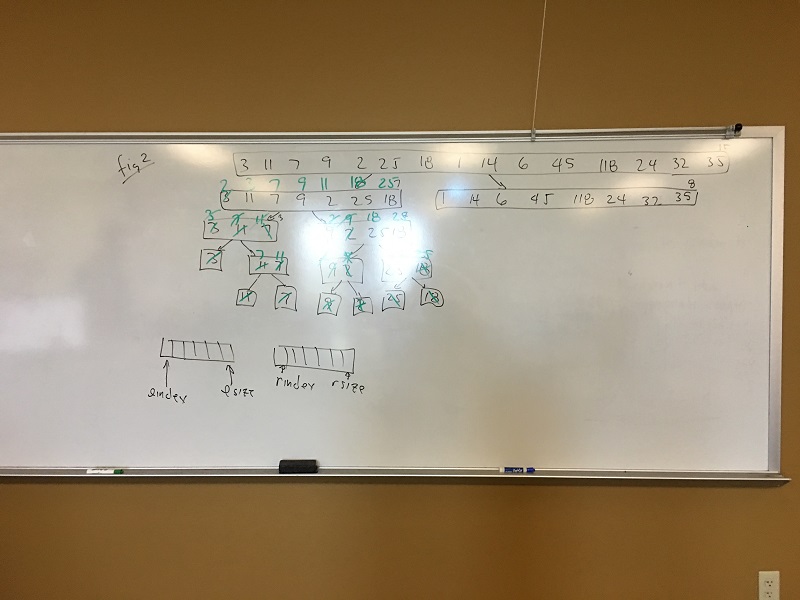 fig 2
15
3 11 7 9 2 25 18 1 14 6 45 118 24 32 35
2 7 9 11 18 25 7
3 11 7 9 2 25 18
8
1 14 6 45 118 24 32 35
3 7 11 3
3 11 7
9 18 25
2 25
3
7 11
11 7
9 2 25 18
lindex lsize rindex rsize